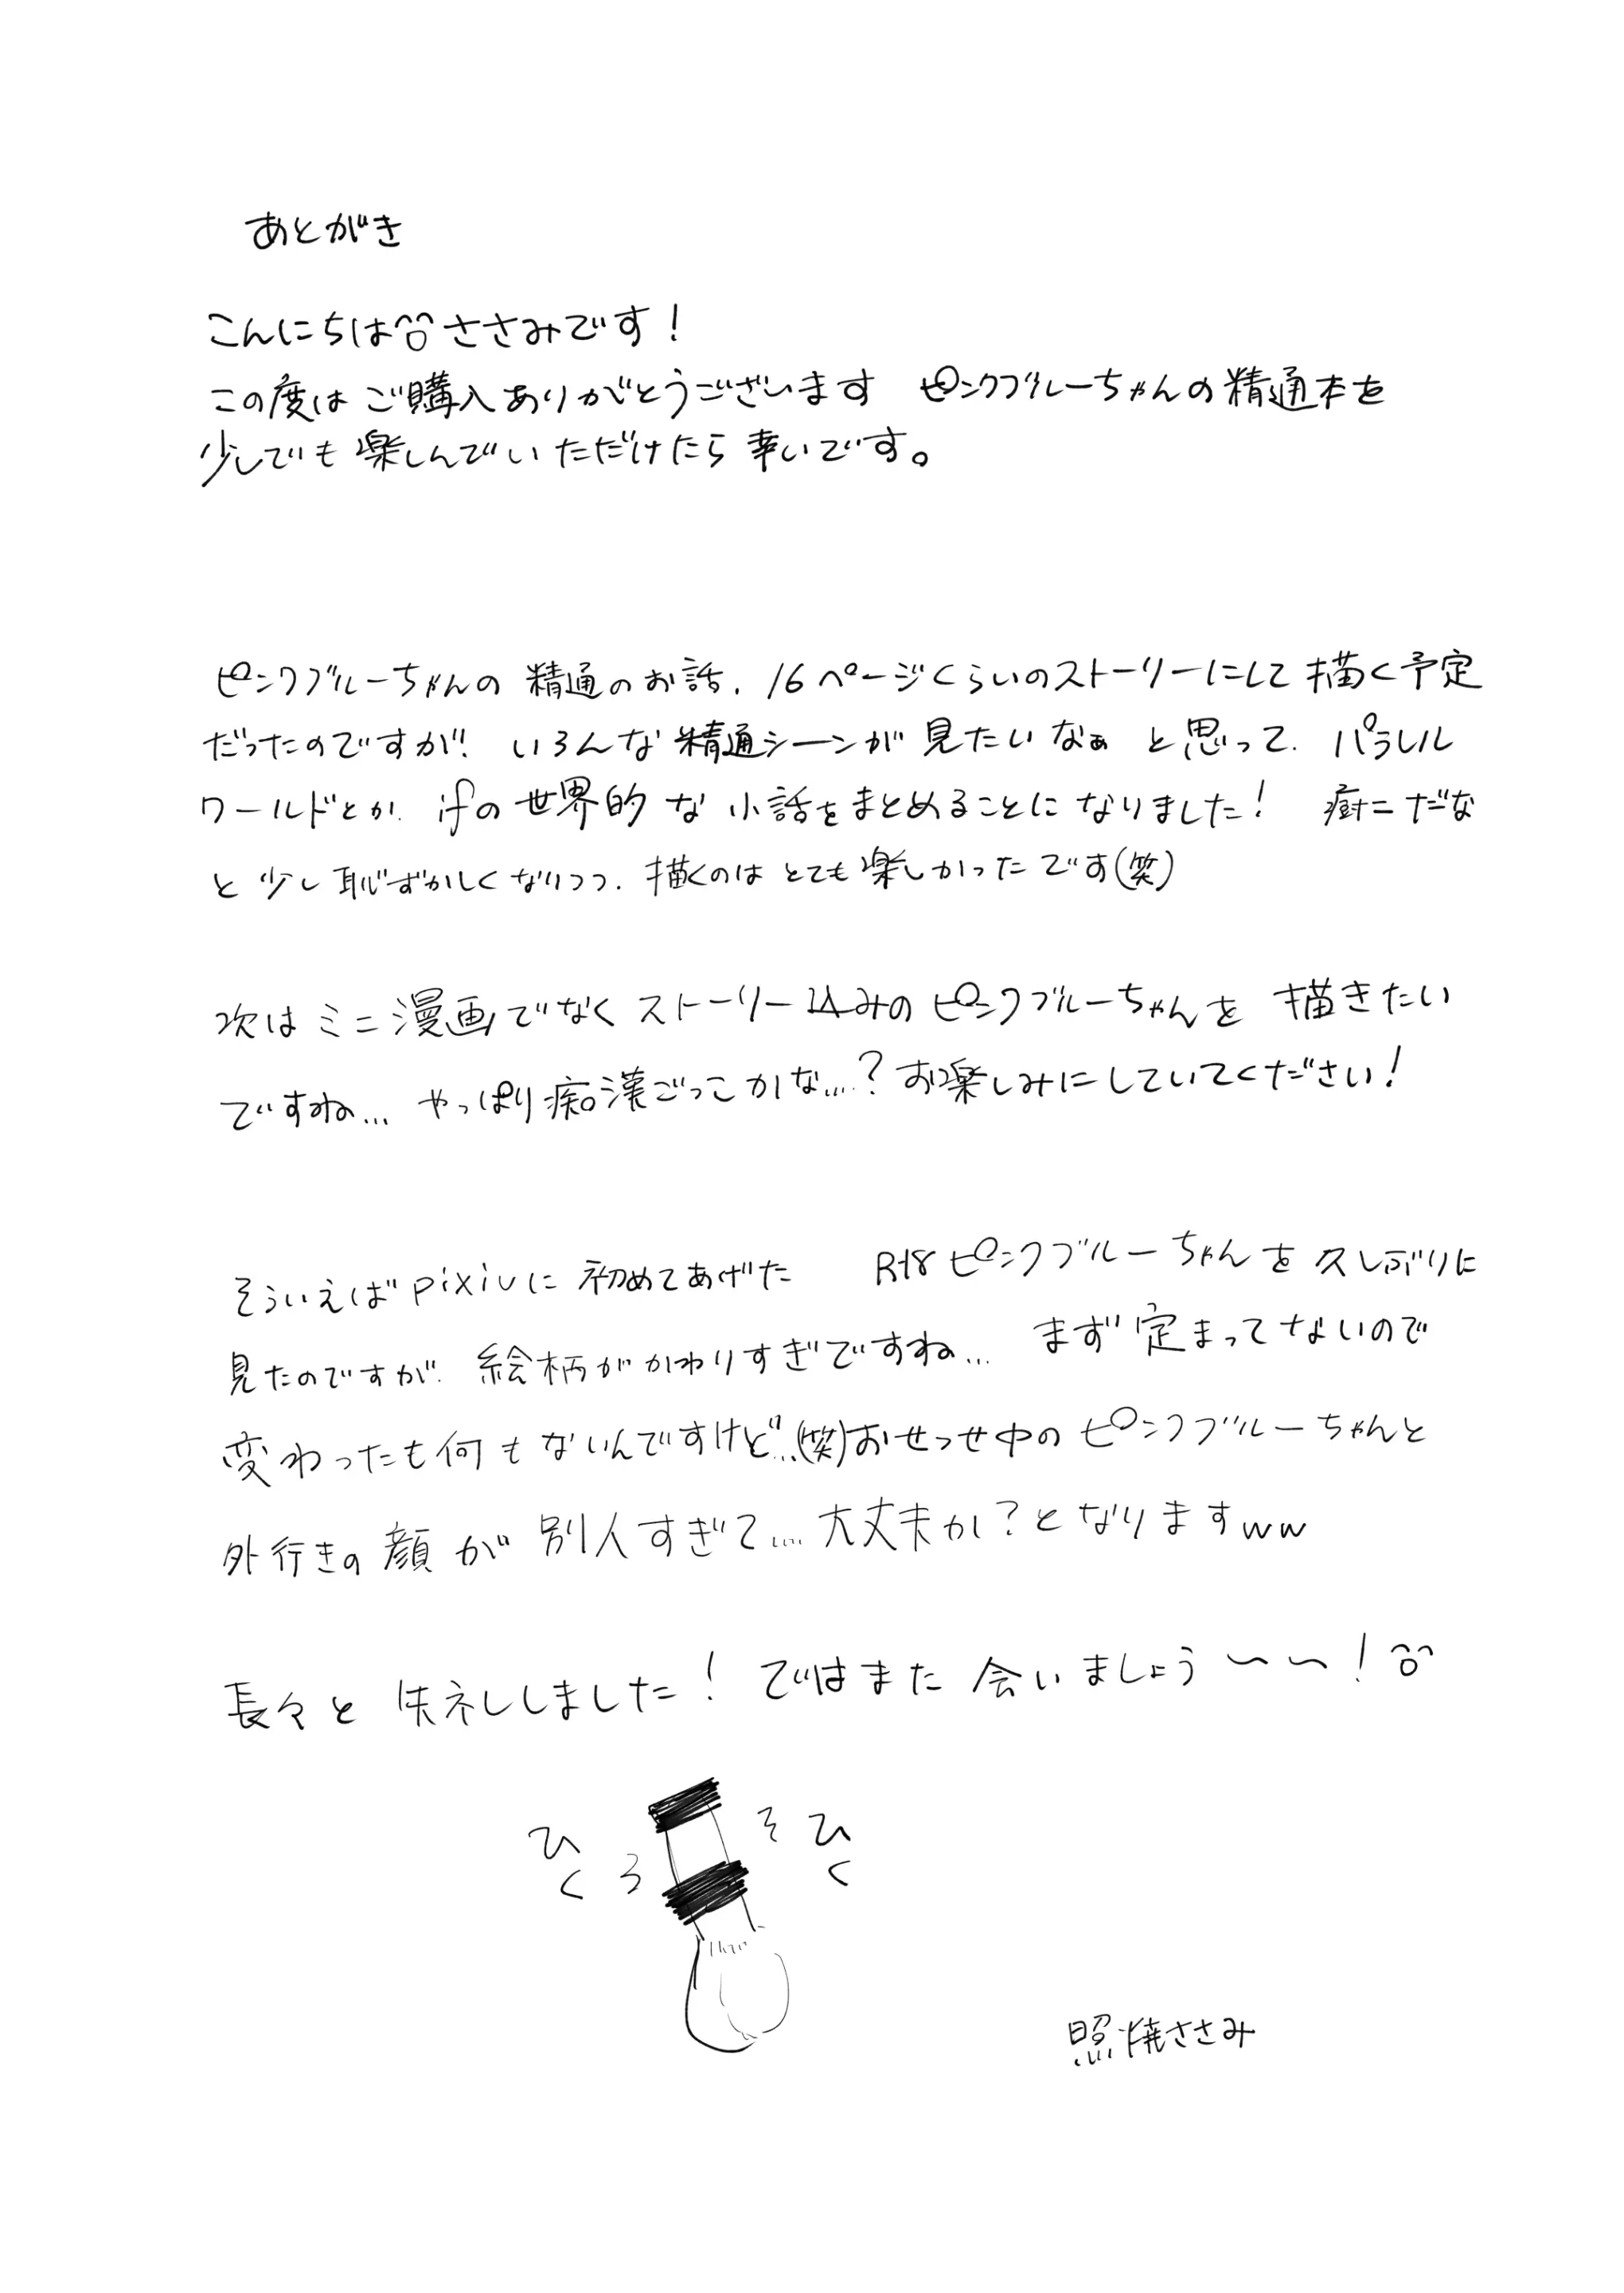 あとがき
こんにちは ささみです!
この度は ご購入ありがとうございます ピンクブルーちゃんの精通本を
少しでも楽しんでいただけたら幸いです。
ピンクブルーちゃんの 精通のお話、16ページくらいのストーリーにして描く予定
だったのですが、いろんな精通シーンが見たいなぁ と思って、パラレル
ワールドとか、ifの世界的な小話をまとめることになりました! 癖だな
と少し恥ずかしくなりつつ、描くのはとても楽しかったです(笑)
次はミニ漫画でなくストーリー込みのピンクブルーちゃんを描きたい
ですね… やっぱり痴漢ごっこかな…? お楽しみにしていてください!
そういえばpixivに初めてあげた R-18ピンクブルーちゃんを久しぶりに
見たのですが、絵柄がかわりすぎですね… まず定まってないので
変わったも何もないんですけど…(笑)おせっせ中のピンクブルーちゃんと
外行きの顔が別人すぎて…大丈夫か?となりますww
長々と失礼しました! ではまた会いましょう〜〜!
ひく
ろ
そ
ひく
照焼ささみ